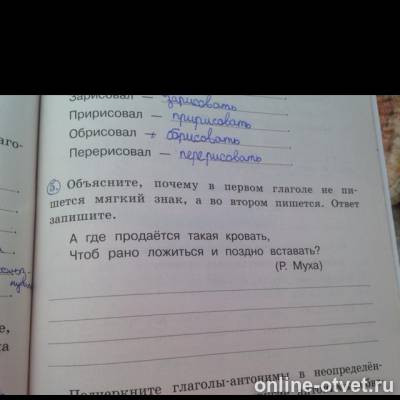 Зарисовал — зарисовать.
Пририсовал — пририсовать.
Обрисовал — обрисовать.
Перерисовал — перерисовать.
аго-
5. Объясните, почему в первом глаголе не пи-
шется мягкий знак, а во втором пишется. Ответ
запишите.
А где продаётся такая кровать,
Чтоб рано ложиться и поздно вставать?
(Р. Муха)
Подчеркните глаголы-антонимы в неопределён-
online-otvet.ru